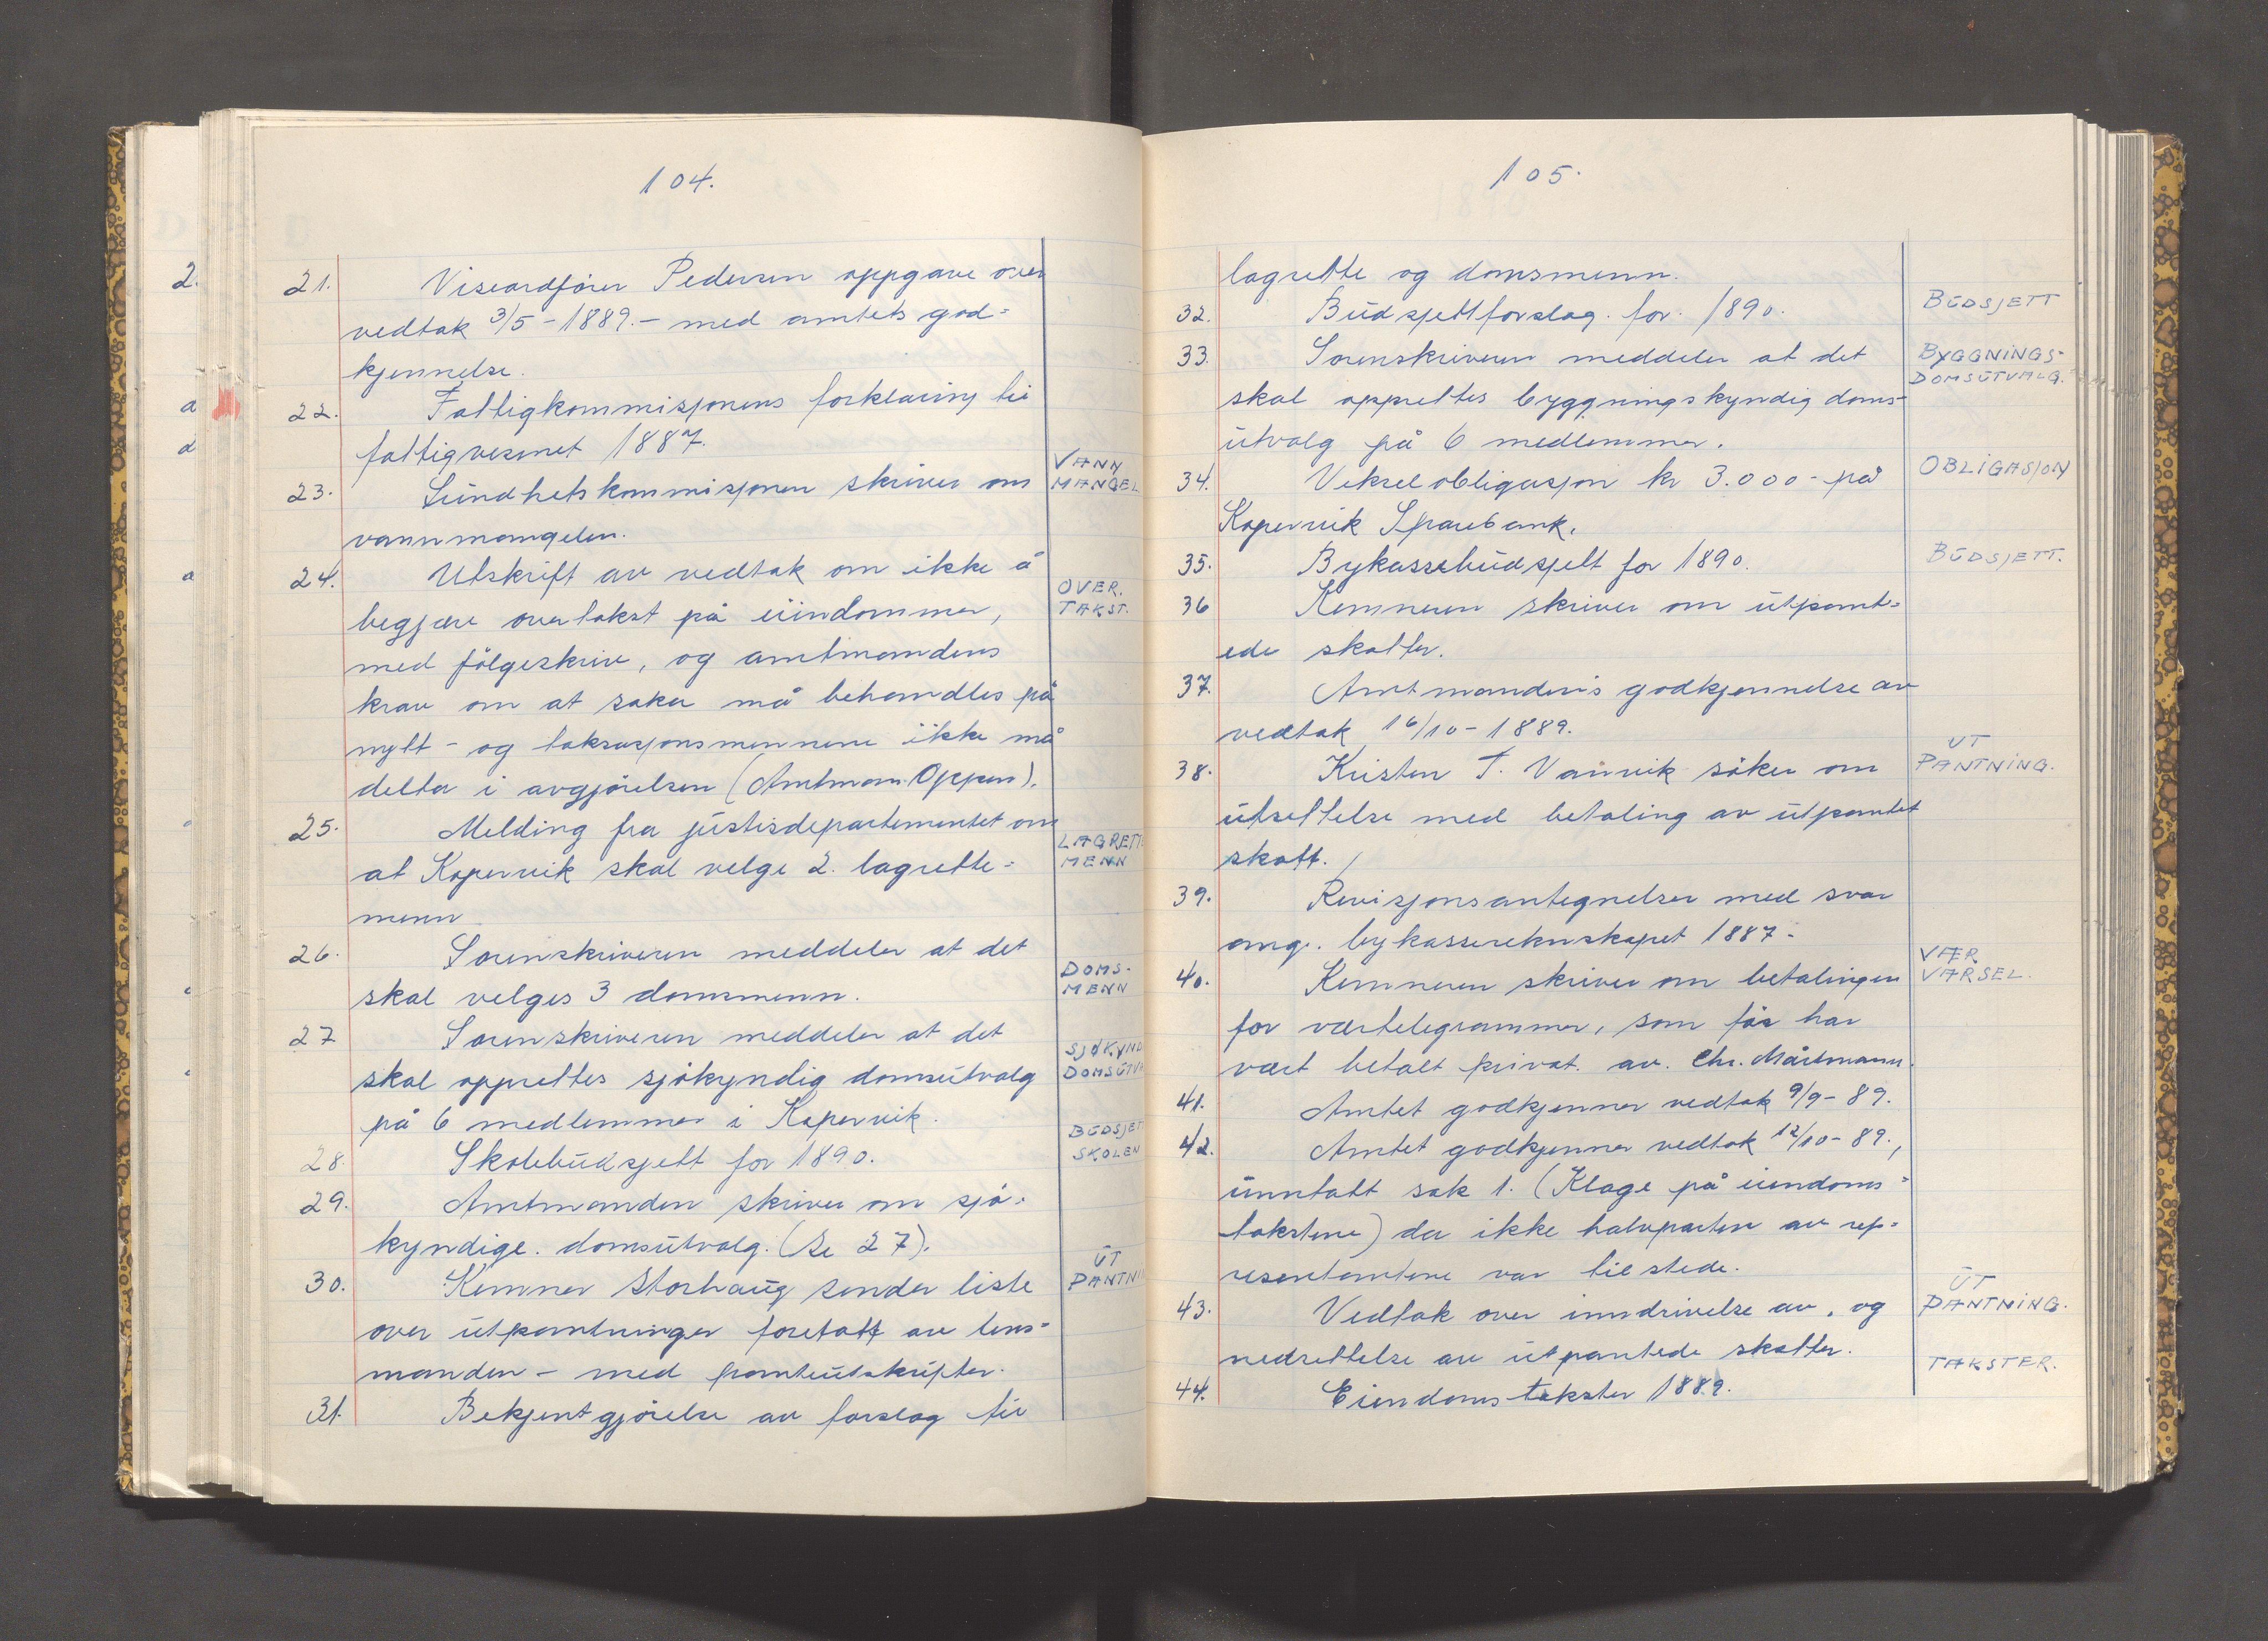 104.
21. Viseordfører Pedersen oppgave over
vedtak 3/5 - 1889. - med amtets god=
kjennelse.
22. Fattigkommisjonens forklaring til
fattigvesenet 1887.
23. Sundhetskommisjonen skriver om
VANN
MANGEL
vannmangelen.
24. Utskrift av vedtak om ikke å
OVER.
TAKST.
begjære overtakst på eiendommer,
med følgeskriv, og amtmandens
krav om at saken må behandles på
nytt - og taksasjonsmennene ikke må
delta i avgjørelsen (Amtmann Oppen).
25. Melding fra justisdepartementet om
LAGRETT
MENN
at Kopervik skal velge 2. lagrette=
menn
26. Sorenskriveren meddeler at det
DOMS-
MENN
skal velges 3 domsmenn.
27 Sorenskriveren meddeler at det
SJØKYND
DOMSUTV
skal opprettes sjøkyndig domsutvalg
på 6 medlemmer i Kopervik.
BUDSJET
SKOLEN
28. Skolebudsjett for 1890.
29. Amtmanden skriver om sjø-
kyndige. domsutvalg. (Se 27).
30. Kemner Storhaug sender liste
UT
PANTNI
over utpantninger foretatt av lens=
manden - med panteutskrifter.
31. Bekjentgjørelse av forslag til
105.
lagrette og domsmenn.
32. Budsjettforslag. for. 1890.
BUDSJETT
33. Sorenskriveren meddeler at det
BYGGNINGS-
DOMSUTVALG.
skal opprettes byggningskyndig doms-
utvalg på 6 medlemmer.
34. Vekselobligasjon kr 3.000 - på
OBLIGASJON
Kopervik Sparebank.
35. Bykassebudsjett for 1890.
BUDSJETT.
36 Kemneren skriver om utpant=
ede skatter.
37. Amtmandens godkjennelse av
vedtak 16/10 - 1889.
38. Kristen T. Vannvik søker om
UT
PANTNING.
utsettelse med betaling av utpantet
skatt.
39. Revisjonsantegnelser med svar
ang. bykasseregnskapet 1887 -
40. Kemneren skriver om betalingen
VÆR
VARSEL.
for værtelegrammer, som før har
vært betalt privat. av. Chr. Mårtmann.
41. Amtet godkjenner vedtak 9/9 - 89.
42. Amtet godkjenner vedtak 12/10 - 89.,
unntatt sak 1. (Klage på eiendoms=
takstene) da ikke halvparten av rep=
resentantene var tilstede.
43. Vedtak over inndrivelse av, og
UT
PANTNING.
nedsettelse av utpantede skatter.
44. Eiendomstakster 1889.
TAKSTER.